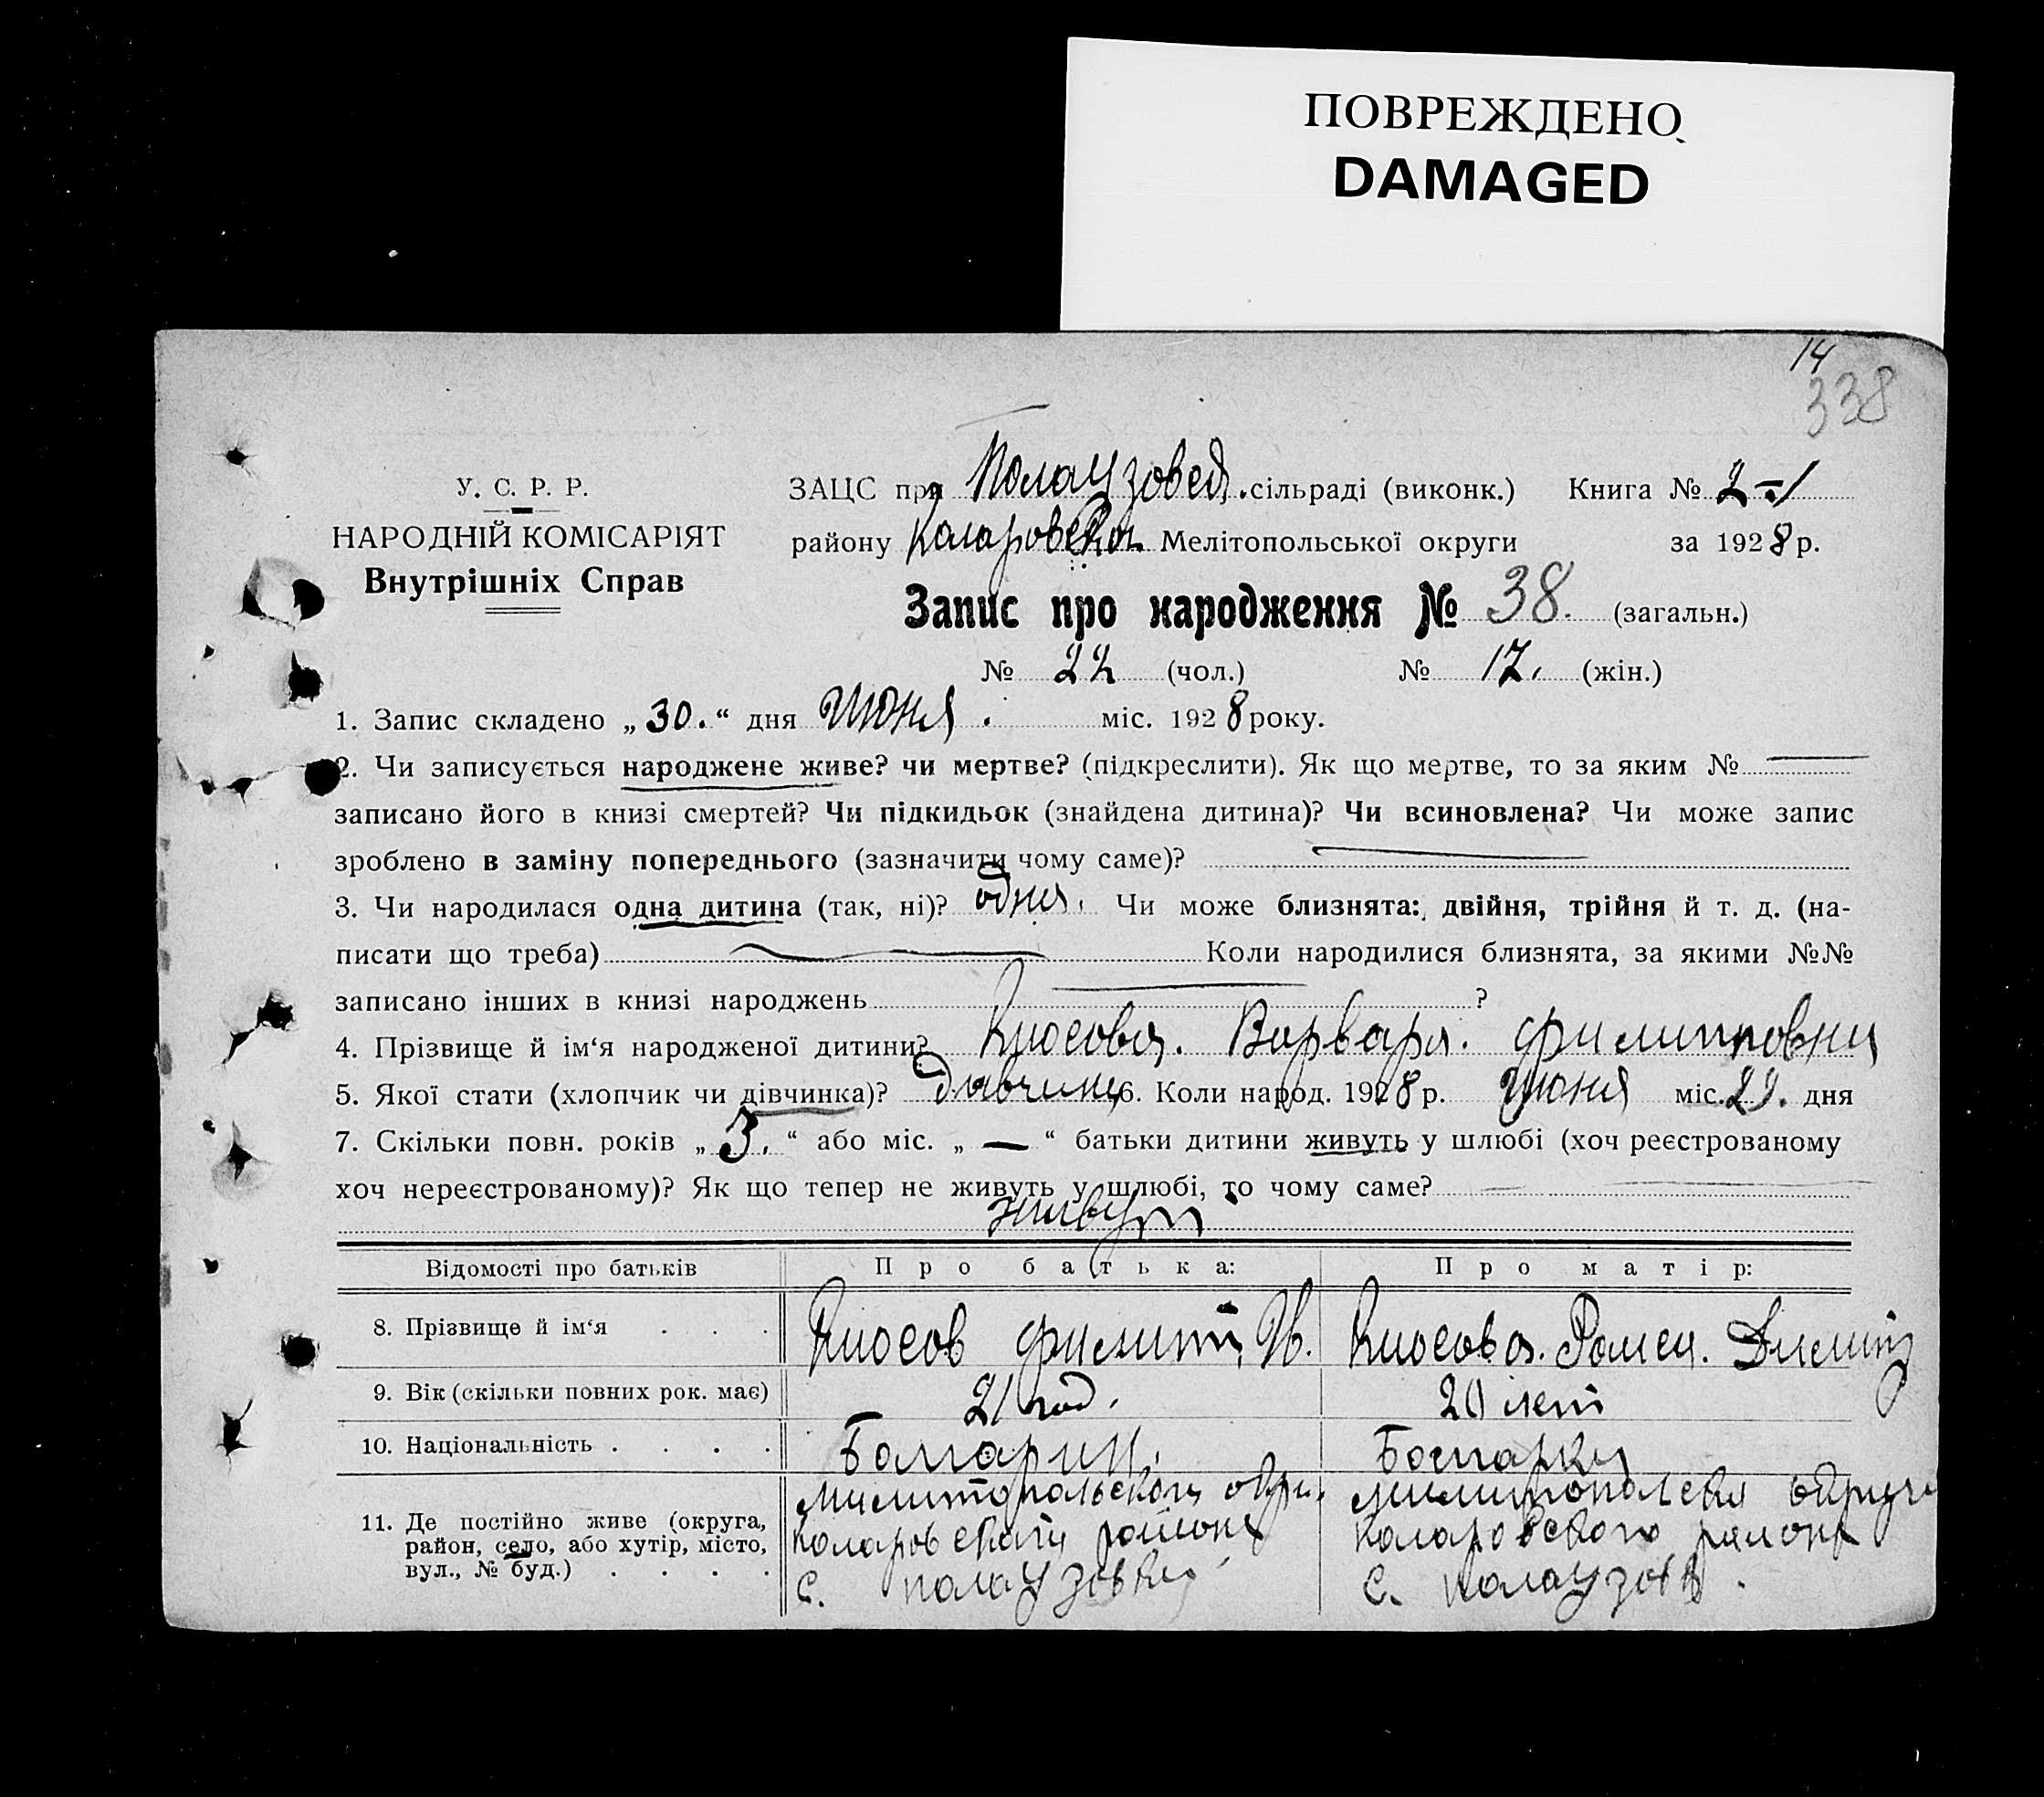 ПОВРЕЖДЕНО
DAMAGED
14
338
У. С. Р. Р.
НАРОДНІЙ КОМІСАРІЯТ
Внутрішніх Справ
ЗАЦС при Полаузовсд. сільраді (виконк.) Книга № 2-1
району Коларовской Мелітопольської округи за 1928 р.
Запис про народження № 38. (загальн.)
№ 22 (чол.) № 17. (жін.)
1. Запис складено „30.“ дня Июня. міс. 1928 року.
2. Чи записується народжене живе? чи мертве? (підкреслити). Як що мертве, то за яким № —
записано його в книзі смертей? Чи підкидьок (знайдена дитина)? Чи всиновлена? Чи може запис
зроблено в заміну попереднього (зазначити чому саме)? —
3. Чи народилася одна дитина (так, ні)? одна. Чи може близнята: двійня, трійня й т. д. (на-
писати що треба) — Коли народилися близнята, за якими №№
записано інших в книзі народжень — ?
4. Прізвище й ім‘я народженої дитини? Кюсова. Варвара. Филиповна
5. Якої стати (хлопчик чи дівчинка)? 6. Коли народ. 1928 р. Июня міс. 29. дня
7. Скільки повн. років „3.“ або міс. „—“ батьки дитини живуть у шлюбі (хоч реєстрованому
хоч нереєстрованому)? Як що тепер не живуть у шлюбі, то чому саме? —
живут
Відомості про батьків Про батька: Про матір:
8. Прізвище й ім‘я . . . Кюсов Филипп И. Кюсова.
9. Вік (скільки повних рок. має) 21 год. 20 лет
10. Національність . . . . Болгарин. Болгарка
11. Де постійно живе (округа,
район, село, або хутір, місто,
вул., № буд.) . . . .
Милитопольского окру.
Коларовского района
с. Палаузовка
Милитополская округа
Коларовского района
с. Палаузовк.